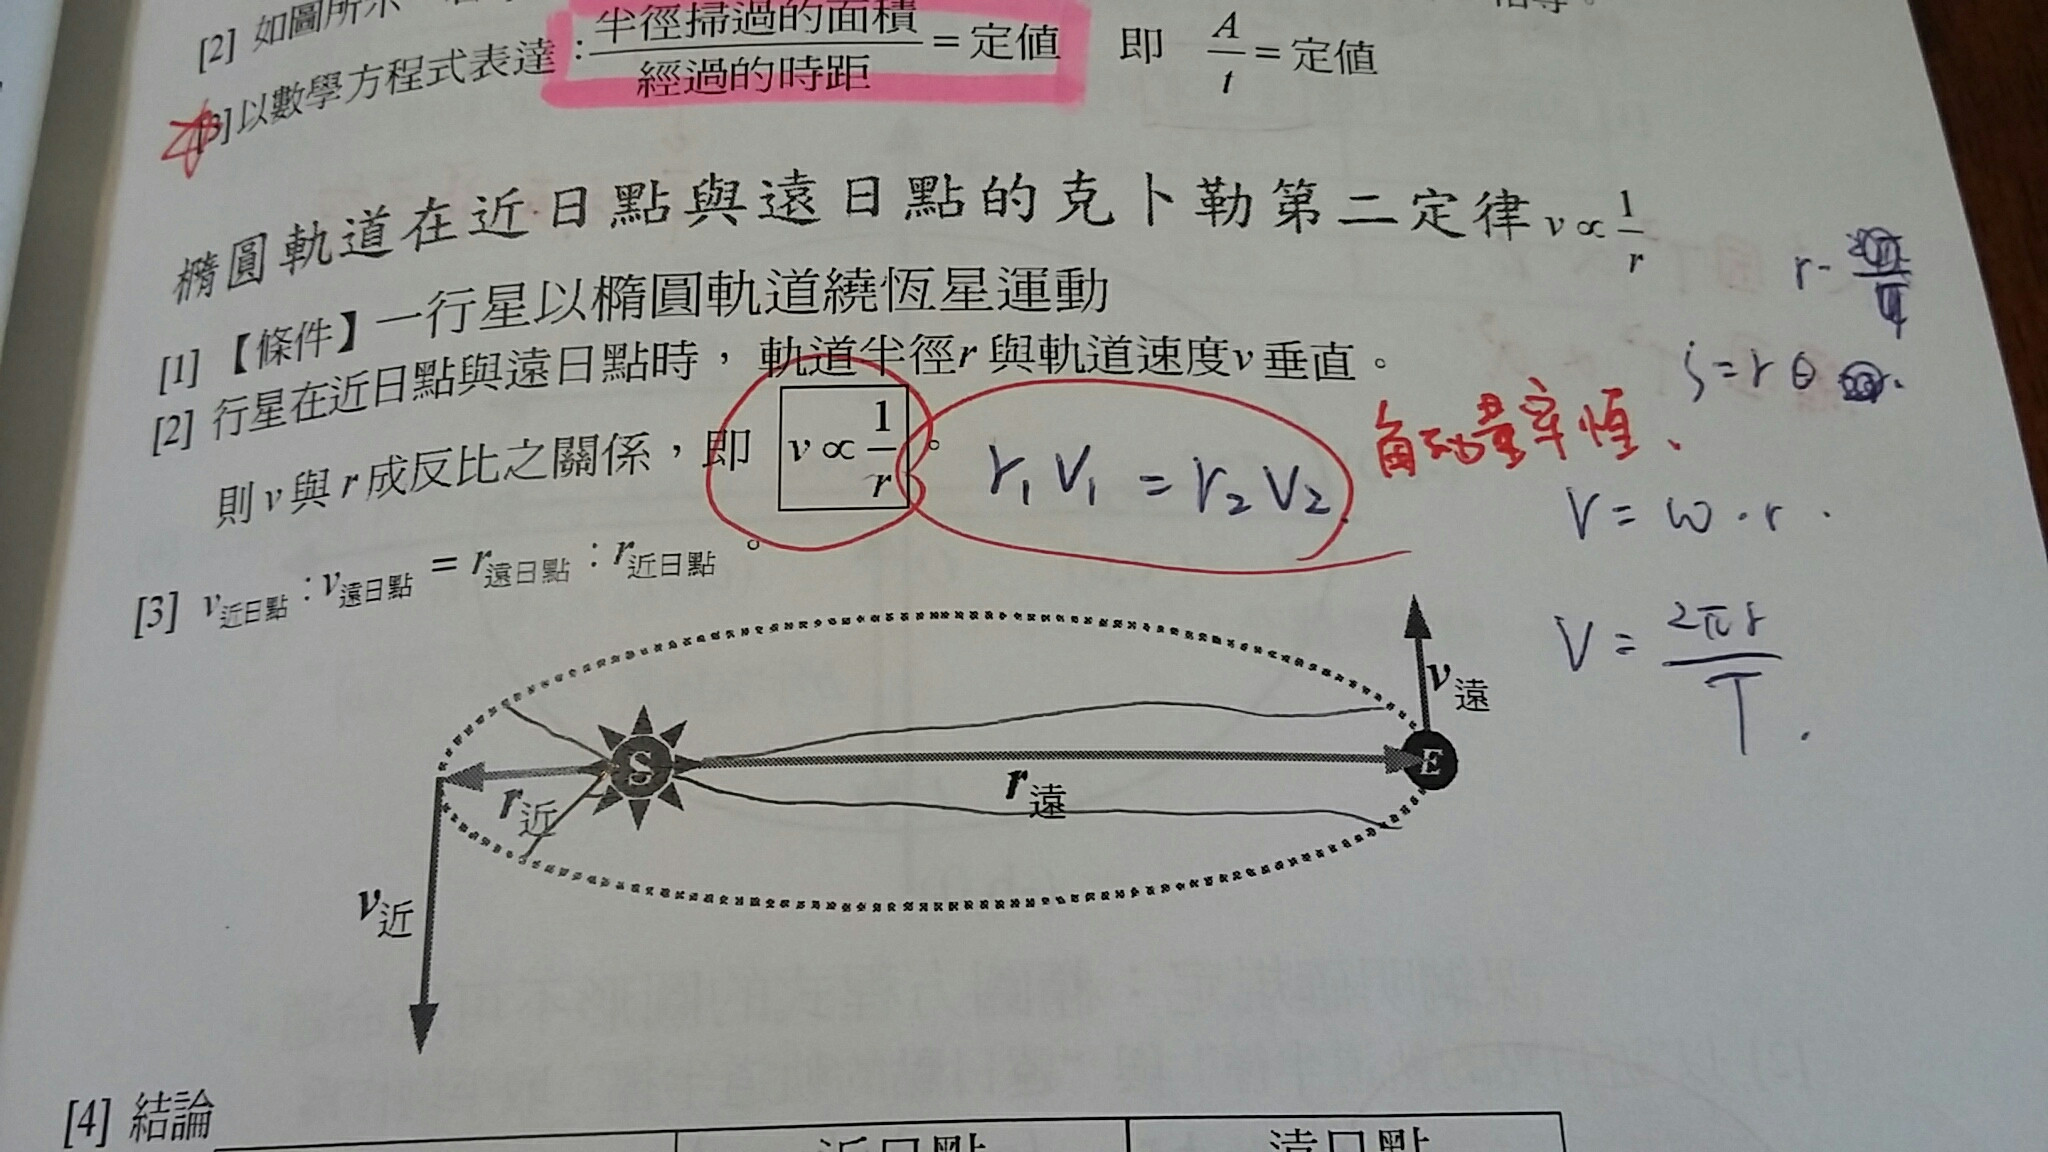 [2] 如圖所示
[3] 以數學方程式表達：半徑掃過的面積/經過的時距 = 定值 即 A/t = 定值
橢圓軌道在近日點與遠日點的克卜勒第二定律 v ∝ 1/r
[1] 【條件】一行星以橢圓軌道繞恆星運動
[2] 行星在近日點與遠日點時，軌道半徑r與軌道速度v垂直。
s = rθ
則v與r成反比之關係，即 v ∝ 1/r。
r₁v₁ = r₂v₂
角動量守恆、
V = ω·r.
[3] v近日點：v遠日點 = r遠日點：r近日點。
V = 2πr/T.
v遠
S
E
r近
r遠
v近
[4] 結論
近日點 遠日點